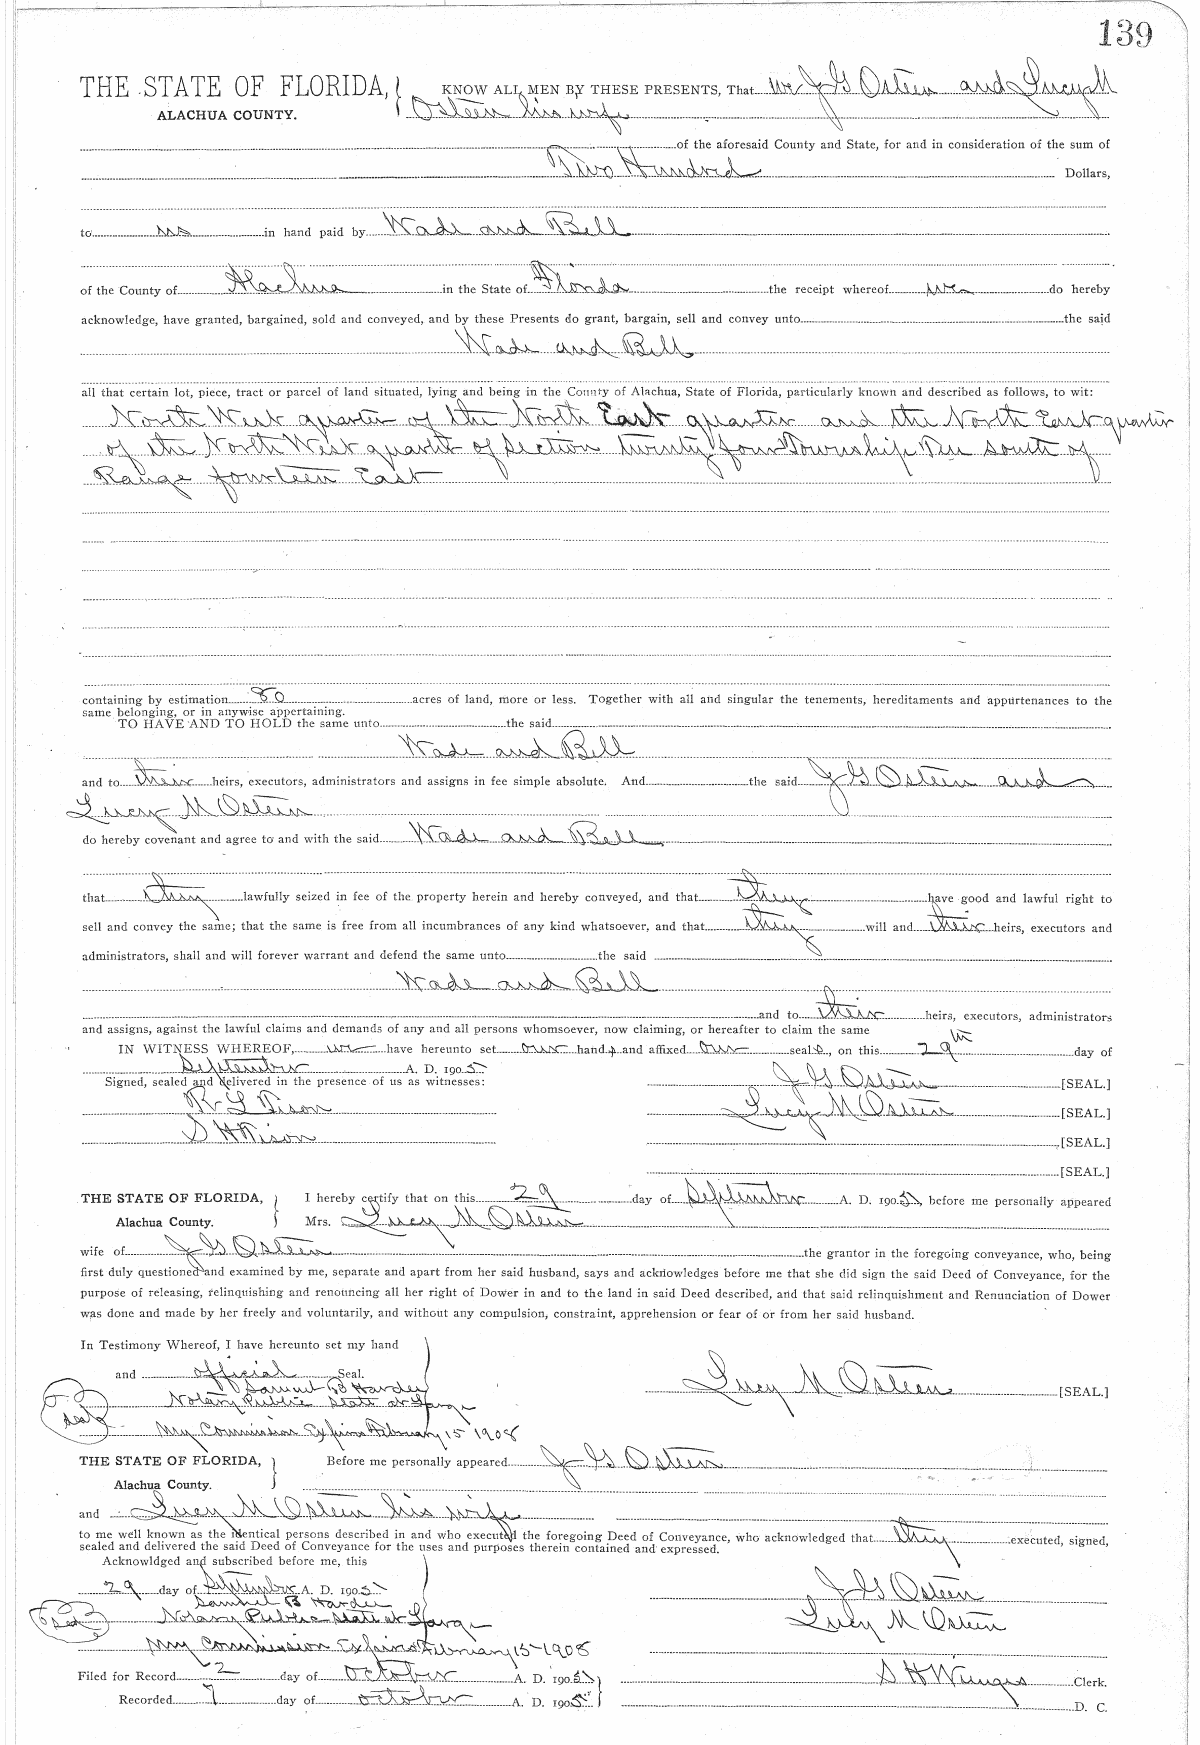 139
THE STATE OF FLORIDA, KNOW ALL MEN BY THESE PRESENTS, That we J G Osteen and Lucy M
ALACHUA COUNTY. Osteen his wife
of the aforesaid County and State, for and in consideration of the sum of
Two Hundred Dollars,
to us in hand paid by Wade and Bell
of the County of Alachua in the State of Florida the receipt whereof we do hereby
acknowledge, have granted, bargained, sold and conveyed, and by these Presents do grant, bargain, sell and convey unto the said
Wade and Bell
all that certain lot, piece, tract or parcel of land situated, lying and being in the County of Alachua, State of Florida, particularly known and described as follows, to wit:
North West quarter of the North East quarter and the North East quarter
of the North West quarter of Section twenty four Township Ten south of
Range fourteen East
containing by estimation 80 acres of land, more or less. Together with all and singular the tenements, hereditaments and appurtenances to the
same belonging, or in anywise appertaining.
TO HAVE AND TO HOLD the same unto the said
Wade and Bell
and to their heirs, executors, administrators and assigns in fee simple absolute. And the said J G Osteen and
Lucy M Osteen
do hereby covenant and agree to and with the said Wade and Bell
that they lawfully seized in fee of the property herein and hereby conveyed, and that they have good and lawful right to
sell and convey the same; that the same is free from all incumbrances of any kind whatsoever, and that they will and their heirs, executors and
administrators, shall and will forever warrant and defend the same unto the said
Wade and Bell
and to their heirs, executors, administrators
and assigns, against the lawful claims and demands of any and all persons whomsoever, now claiming, or hereafter to claim the same
IN WITNESS WHEREOF, we have hereunto set our hands and affixed our seals, on this 29th day of
September A. D. 1905
Signed, sealed and delivered in the presence of us as witnesses: J G Osteen [SEAL.]
R L Tison Lucy M Osteen [SEAL.]
S H Tison [SEAL.]
[SEAL.]
THE STATE OF FLORIDA, I hereby certify that on this 29 day of September A. D. 1905, before me personally appeared
Alachua County. Mrs. Lucy M Osteen
wife of J G Osteen the grantor in the foregoing conveyance, who, being
first duly questioned and examined by me, separate and apart from her said husband, says and acknowledges before me that she did sign the said Deed of Conveyance, for the
purpose of releasing, relinquishing and renouncing all her right of Dower in and to the land in said Deed described, and that said relinquishment and Renunciation of Dower
was done and made by her freely and voluntarily, and without any compulsion, constraint, apprehension or fear of or from her said husband.
In Testimony Whereof, I have hereunto set my hand
and official Seal. Lucy M Osteen [SEAL.]
Samuel B Hardee
Notary Public State at Large
seal
My Commission Expires February 15 1908
THE STATE OF FLORIDA, Before me personally appeared J G Osteen
Alachua County.
and Lucy M Osteen his wife
to me well known as the identical persons described in and who executed the foregoing Deed of Conveyance, who acknowledged that they executed, signed,
sealed and delivered the said Deed of Conveyance for the uses and purposes therein contained and expressed.
Acknowldged and subscribed before me, this
29 day of September A. D. 1905 J G Osteen
Samuel B Hardee
seal Notary Public State at Large Lucy M Osteen
My Commission Expires February 15 1908
Filed for Record 2 day of October A. D. 1905 S H Wienges Clerk.
Recorded 7 day of October A. D. 1905 D. C.